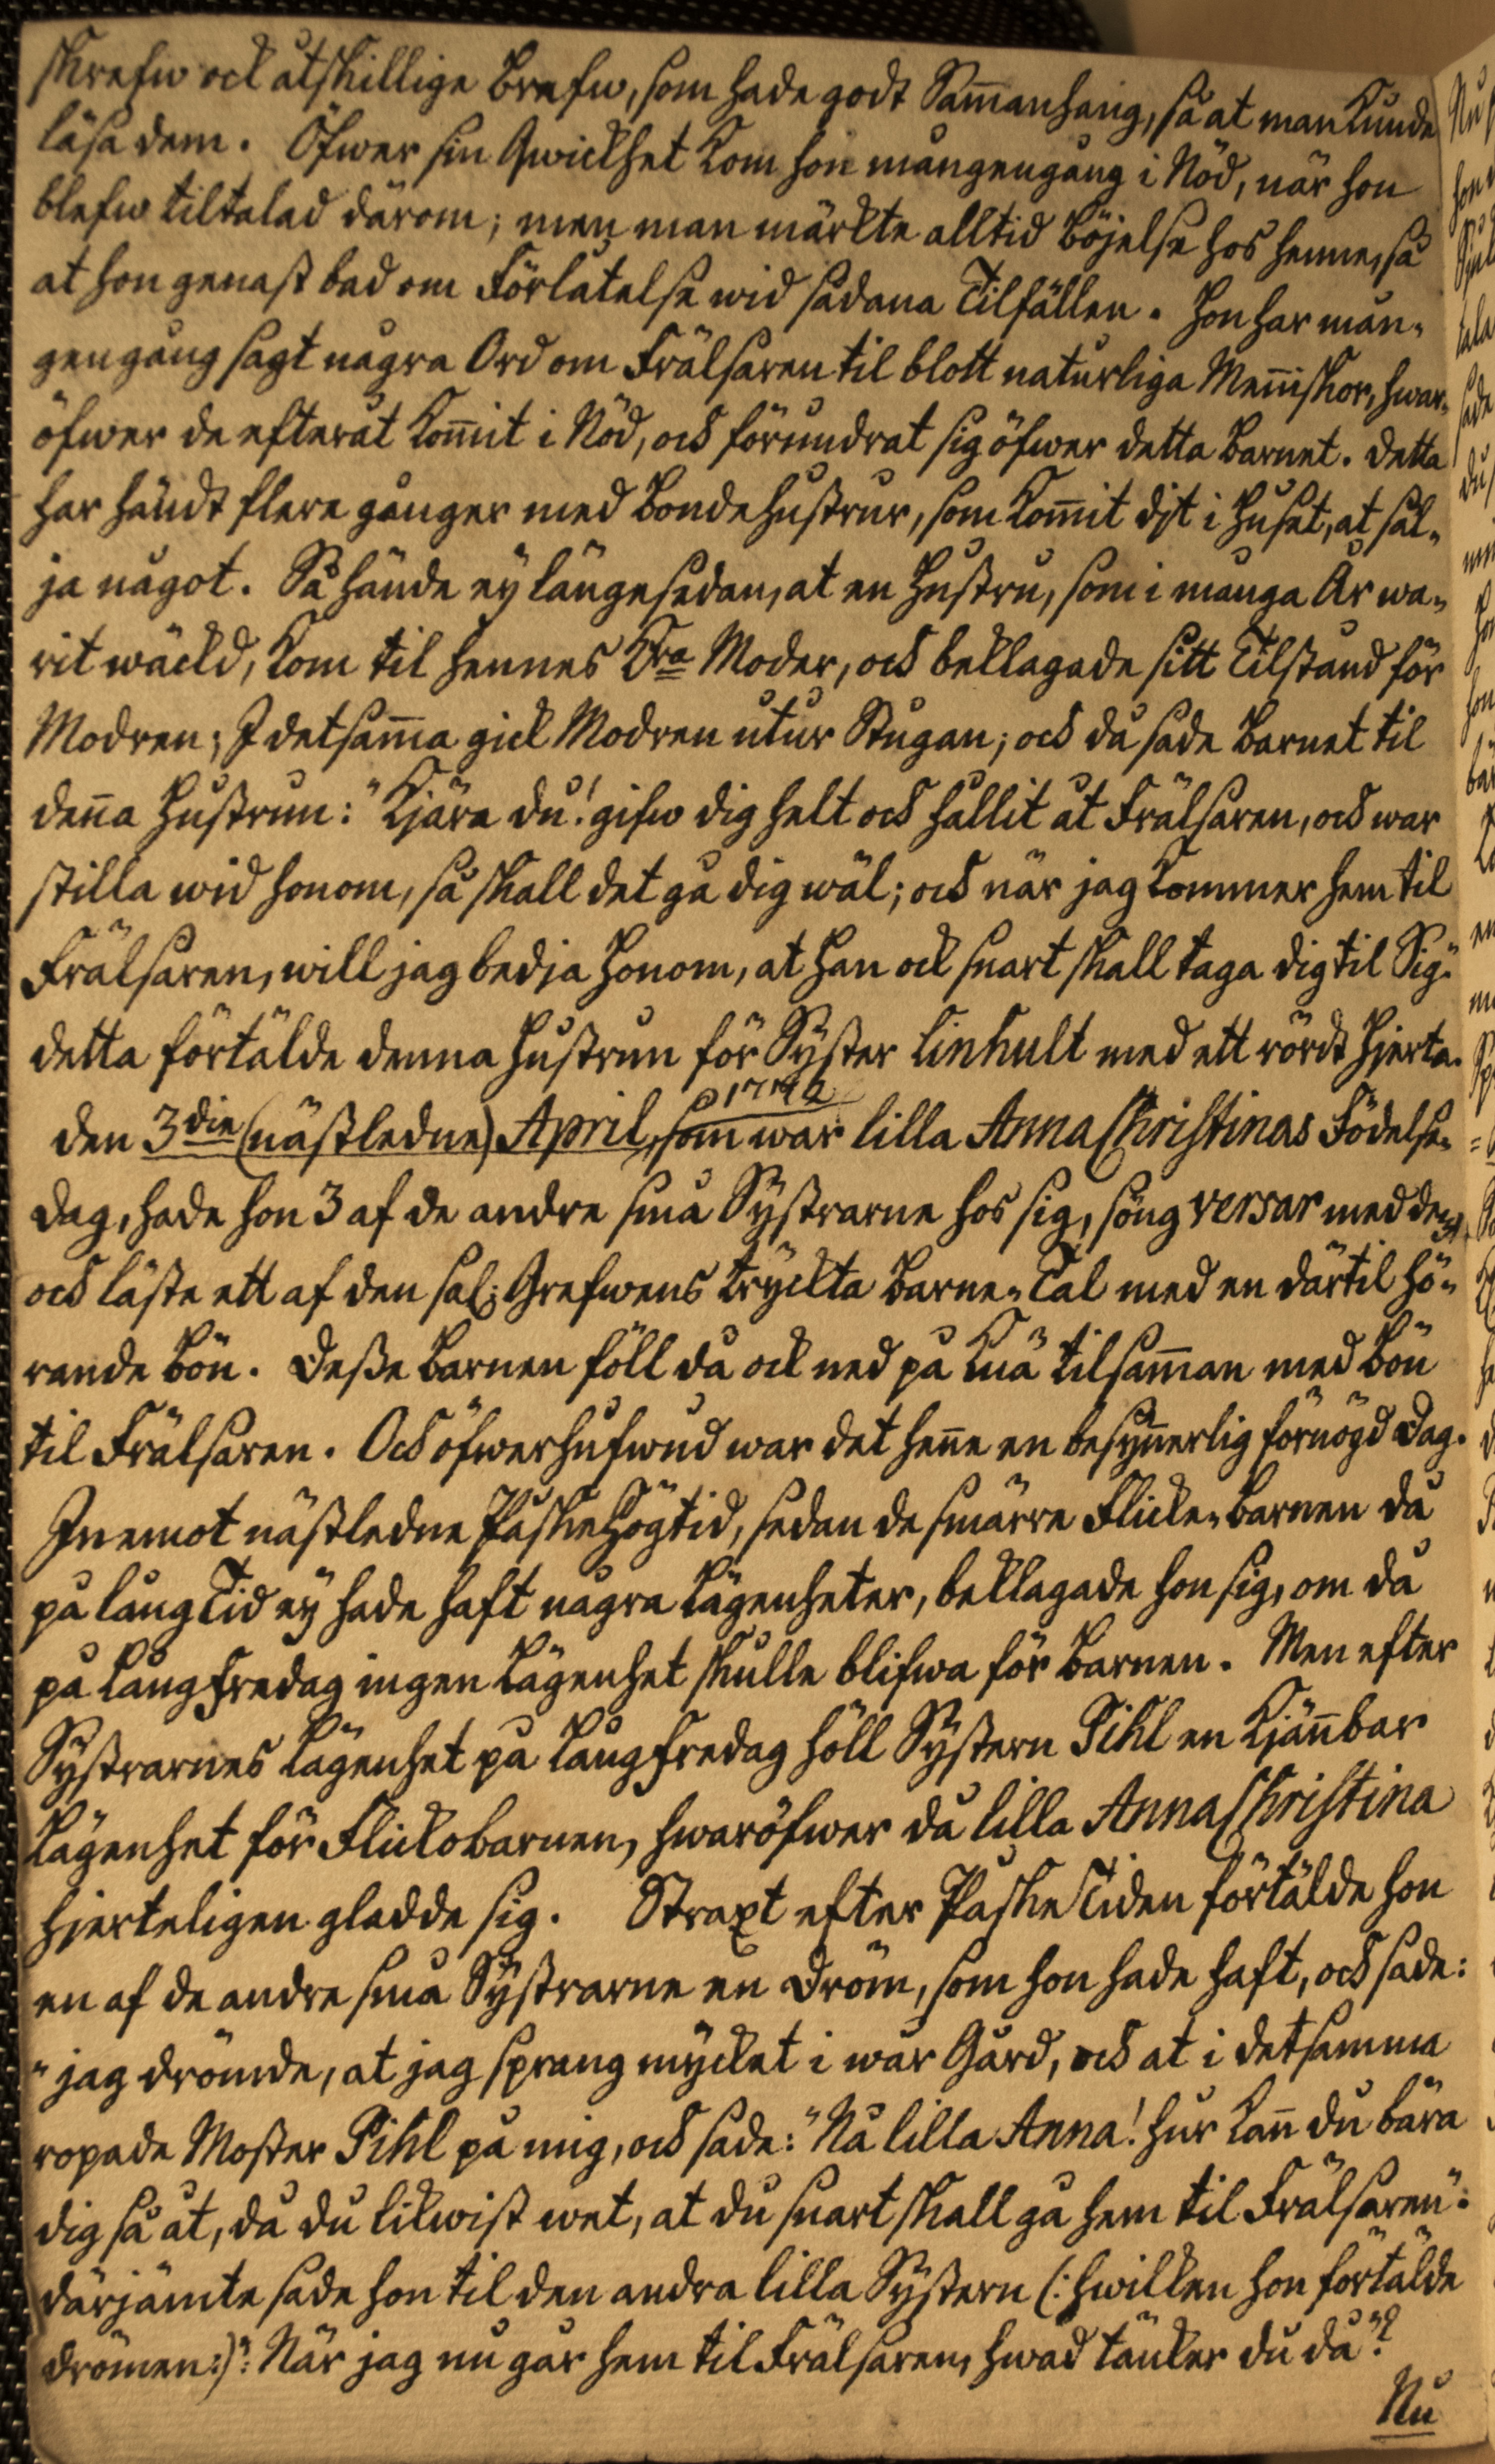 skrefw ock åtskillige Brefw, som hade godt Sam̄anhang, så at man kunde
läsa dem. Öfwer sin Qwickhet kom hon mångengång i Nöd, när hon
blefw tiltalad därom; men man märkte alltid Böjelse hos henne, så
at hon genast bad om Förlåtelse wid sådana Tilfällen. Hon har mån-
gengång sagt några Ord om Frälsaren til blott naturliga Men̄iskor, hwar-
öfwer de efteråt kom̄it i Nöd, och förundrat sig öfwer detta Barnet. Detta
har händt flere gånger med Bondehustrur, som kom̄it dit i Huset, at säl-
ja något. Så hände ey längesedan, at en Hustru, som i många År wa-
rit wäckd, kom til hennes K:ra Moder, och beklagade sitt Tilstånd för
Modren; I detsam̄a gick Modren utur Stugan; och då sade Barnet til
den̄a Hustrun: "Kjära du! gifw dig helt och hållit åt Frälsaren, och war
stilla wid honom, så skall det gå dig wäl; och när jag kommer hem til
Frälsaren, will jag bedja Honom, at Han ock snart skall taga dig til Sig."
Detta förtälde denna Hustrun för Syster Linhult med ett rördt Hjerta.
1772
Den 3die (nästledne) April, som war lilla Anna Christinas Födelse-
dag, hade hon 3 af de andre små Systrarne hos sig, söng versar med dem,
och läste ett af den sal: Grefwens tryckta Barne-Tal med en därtil hö-
rande Bön. Desse Barnen föll då ock ned på Knä tilsam̄an med Bön
til Frälsaren. Och öfwerhufwud war det hen̄e en besyn̄erlig förnögd Dag.
Inemot nästledne Påskehögtid, sedan de smärre Flicke-Barnen då
på lång Tid ey hade haft några Lägenheter, beklagade hon sig, om då
på Långfredag ingen Lägenhet skulle blifwa för Barnen. Men efter
Systrarnes Lägenhet på Långfredag höll Systern Pihl en kjän̄bar
Lägenhet för Flickobarnen, hwaröfwer då lilla Anna Christina
hjerteligen gladde sig. Straxt efter Påske Tiden förtälde hon
en af de andre små Systrarne en Dröm, som hon hade haft, och sade:
"jag drömde, at jag sprang mycket i wår Gård, och at i detsamma
ropade Moster Pihl på mig, och sade: "Nå lilla Anna! hur kan̄ du bära
dig så åt, då du likwist wet, at du snart skall gå hem til Frälsaren":
därjämte sade hon til den andra lilla Systern (: hwilken hon förtälde
Drömen:)": När jag nu går hem til Frälsaren, hwad tänker du då"?
Nu